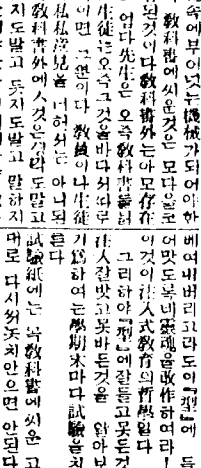 속에부어넛는機械가되어야한
敎科書에씨운것은 모다올코
된것이다敎科書外는아모存在
업다 先生은 오즉敎科書를
生徒는오즉그것을바다
이면 그만이다 敎員이나生徒
私見을 너허서는 아니된
敎科書外에 도말고
지도말고 뭇지도말고 말하지
베여내버리고라도이『型』에 들
어맛도록네靈魂을改作하여라!
이것이注入式敎育의哲學일다
그리하야『型』에잘들고못든것
注入잘밧고못바든것을 알아보
기爲하여는學期末마다試驗을치
른다
試驗紙에는 꼭敎科書에씨운 고
대로 다시쓰지안으면 안된다